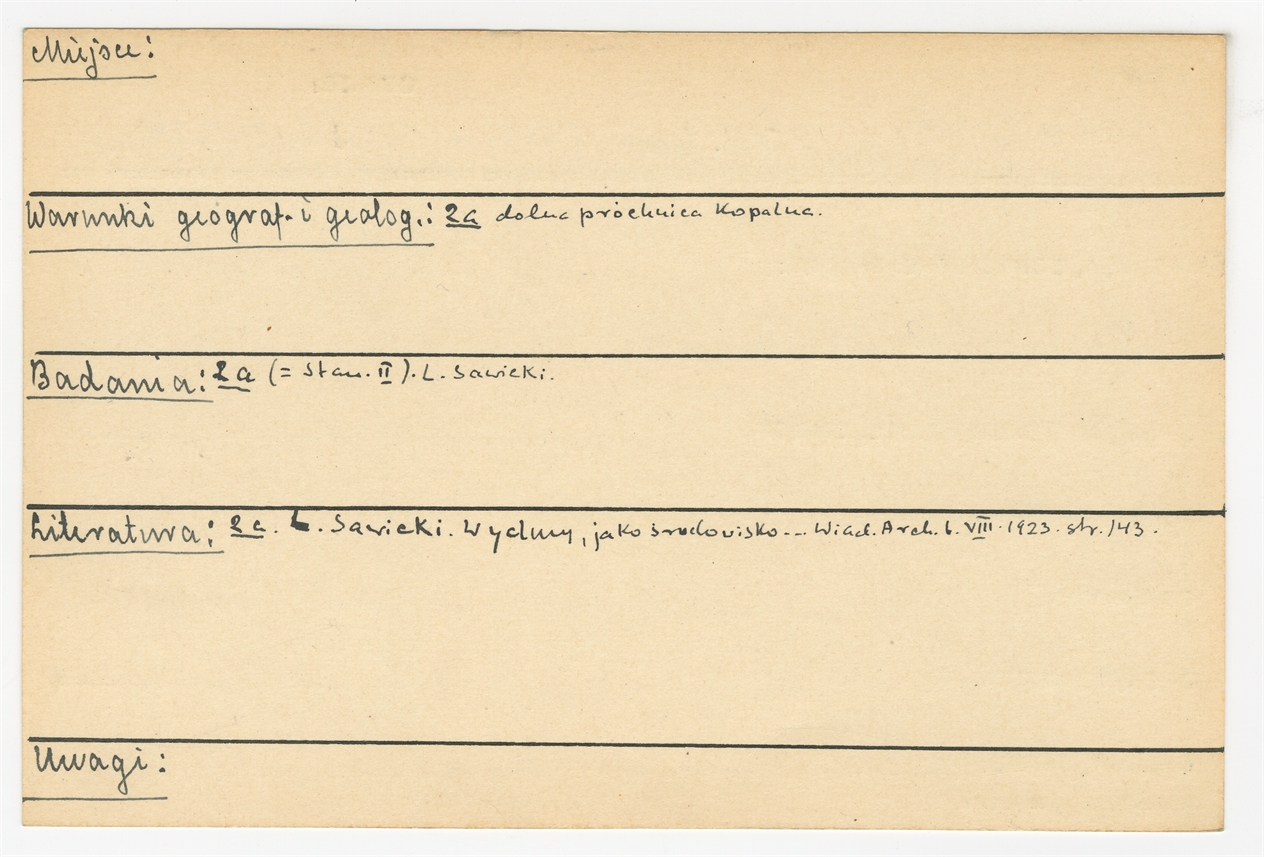 Miejsce:
Warunki geograf. i geolog.: 2a dolna próchnica kopalna.
Badania: 2a (= Stan. II). L. Sawicki.
Literatura: 2a. L. Sawicki. Wydmy, jako środowisko... Wiad. Arch. t. VIII. 1923. str. 143.
Uwagi: